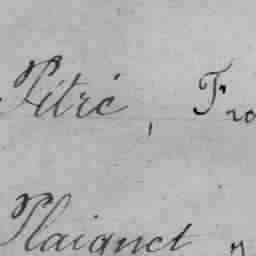 Pitré, Fro
Plaignet „